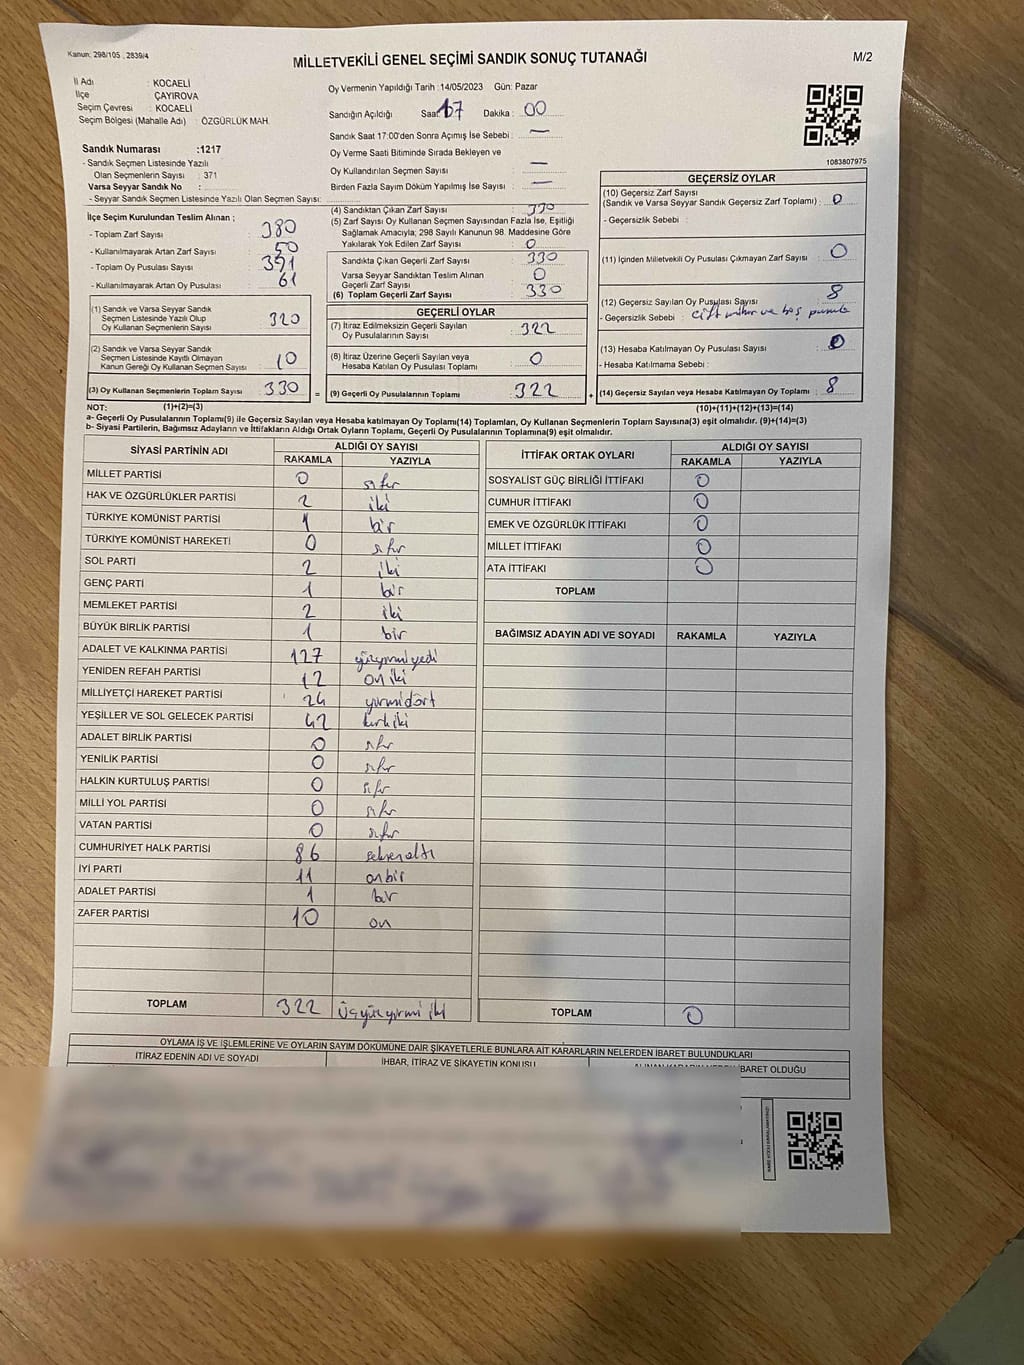 Kanun: 298/105 , 2839/4
MİLLETVEKİLİ GENEL SEÇİMİ SANDIK SONUÇ TUTANAĞI
M/2
İl Adı : KOCAELİ
İlçe ÇAYIROVA
Seçim Çevresi : KOCAELİ
Seçim Bölgesi (Mahalle Adı) : ÖZGÜRLÜK MAH.
Sandık Numarası :1217
- Sandık Seçmen Listesinde Yazılı
Olan Seçmenlerin Sayısı : 371
Varsa Seyyar Sandık No :
- Seyyar Sandık Seçmen Listesinde Yazılı Olan Seçmen Sayısı:
Oy Vermenin Yapıldığı Tarih : 14/05/2023 Gün: Pazar
Sandığın Açıldığı Saat: 17 Dakika : 00
Sandık Saat 17:00'den Sonra Açımış İse Sebebi : —
Oy Verme Saati Bitiminde Sırada Bekleyen ve
Oy Kullandırılan Seçmen Sayısı : —
Birden Fazla Sayım Döküm Yapılmış İse Sayısı : —
1083807975
İlçe Seçim Kurulundan Teslim Alınan ;
- Toplam Zarf Sayısı : 380
- Kullanılmayarak Artan Zarf Sayısı : 50
- Toplam Oy Pusulası Sayısı : 391
- Kullanılmayarak Artan Oy Pusulası : 61
(1) Sandık ve Varsa Seyyar Sandık
Seçmen Listesinde Yazılı Olup
Oy Kullanan Seçmenlerin Sayısı 320
(2) Sandık ve Varsa Seyyar Sandık
Seçmen Listesinde Kayıtlı Olmayan
Kanun Gereği Oy Kullanan Seçmen Sayısı 10
(3) Oy Kullanan Seçmenlerin Toplam Sayısı 330
(4) Sandıktan Çıkan Zarf Sayısı : 330
(5) Zarf Sayısı Oy Kullanan Seçmen Sayısından Fazla İse, Eşitliği
Sağlamak Amacıyla; 298 Sayılı Kanunun 98. Maddesine Göre
Yakılarak Yok Edilen Zarf Sayısı : 0
Sandıkta Çıkan Geçerli Zarf Sayısı : 330
Varsa Seyyar Sandıktan Teslim Alınan
Geçerli Zarf Sayısı : 0
(6) Toplam Geçerli Zarf Sayısı : 330
GEÇERLİ OYLAR
(7) İtiraz Edilmeksizin Geçerli Sayılan
Oy Pusulalarının Sayısı : 322
(8) İtiraz Üzerine Geçerli Sayılan veya
Hesaba Katılan Oy Pusulası Toplamı : 0
= (9) Geçerli Oy Pusulalarının Toplamı : 322 +
GEÇERSİZ OYLAR
(10) Geçersiz Zarf Sayısı
(Sandık ve Varsa Seyyar Sandık Geçersiz Zarf Toplamı) : 0
- Geçersizlik Sebebi :
(11) İçinden Milletvekili Oy Pusulası Çıkmayan Zarf Sayısı : 0
(12) Geçersiz Sayılan Oy Pusulası Sayısı : 8
- Geçersizlik Sebebi : çift mühür ve boş pusula
(13) Hesaba Katılmayan Oy Pusulası Sayısı : 0
- Hesaba Katılmama Sebebi :
(14) Geçersiz Sayılan veya Hesaba Katılmayan Oy Toplamı : 8
NOT: (1)+(2)=(3) (10)+(11)+(12)+(13)=(14)
a- Geçerli Oy Pusulalarının Toplamı(9) ile Geçersiz Sayılan veya Hesaba katılmayan Oy Toplamı(14) Toplamları, Oy Kullanan Seçmenlerin Toplam Sayısına(3) eşit olmalıdır. (9)+(14)=(3)
b- Siyasi Partilerin, Bağımsız Adayların ve İttifakların Aldığı Ortak Oyların Toplamı, Geçerli Oy Pusulalarının Toplamına(9) eşit olmalıdır.
SİYASİ PARTİNİN ADI ALDIĞI OY SAYISI
RAKAMLA YAZIYLA
MİLLET PARTİSİ 0 sıfır
HAK VE ÖZGÜRLÜKLER PARTİSİ 2 iki
TÜRKİYE KOMÜNİST PARTİSİ 1 bir
TÜRKİYE KOMÜNİST HAREKETİ 0 sıfır
SOL PARTİ 2 iki
GENÇ PARTİ 1 bir
MEMLEKET PARTİSİ 2 iki
BÜYÜK BİRLİK PARTİSİ 1 bir
ADALET VE KALKINMA PARTİSİ 127 yüzyirmiyedi
YENİDEN REFAH PARTİSİ 12 on iki
MİLLİYETÇİ HAREKET PARTİSİ 24 yirmidört
YEŞİLLER VE SOL GELECEK PARTİSİ 42 kırkiki
ADALET BİRLİK PARTİSİ 0 sıfır
YENİLİK PARTİSİ 0 sıfır
HALKIN KURTULUŞ PARTİSİ 0 sıfır
MİLLİ YOL PARTİSİ 0 sıfır
VATAN PARTİSİ 0 sıfır
CUMHURİYET HALK PARTİSİ 86 seksenaltı
İYİ PARTİ 11 onbir
ADALET PARTİSİ 1 bir
ZAFER PARTİSİ 10 on
TOPLAM 322 üçyüzyirmi iki
İTTİFAK ORTAK OYLARI ALDIĞI OY SAYISI
RAKAMLA YAZIYLA
SOSYALİST GÜÇ BİRLİĞİ İTTİFAKI 0
CUMHUR İTTİFAKI 0
EMEK VE ÖZGÜRLÜK İTTİFAKI 0
MİLLET İTTİFAKI 0
ATA İTTİFAKI 0
TOPLAM
BAĞIMSIZ ADAYIN ADI VE SOYADI RAKAMLA YAZIYLA
TOPLAM 0
OYLAMA İŞ VE İŞLEMLERİNE VE OYLARIN SAYIM DÖKÜMÜNE DAİR ŞİKAYETLERLE BUNLARA AİT KARARLARIN NELERDEN İBARET BULUNDUKLARI
İTİRAZ EDENİN ADI VE SOYADI İHBAR, İTİRAZ VE ŞİKAYETİN KONUSU ALINAN KARARIN NEDEN İBARET OLDUĞU